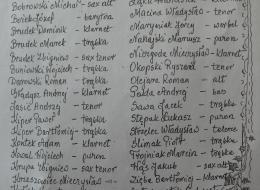 Bobrowski Michał - sax alt
Bielek Józef - barytra
Brudek Dominik - klarnet
Brudek Marek - trąbka
Brudek Zbigniew - sax tenor
Buniowski Wojciech - trąbka
Dabrowski Roman - trąbka
Władysz Andrzej - klarnet
Jasić Andrzej - tenor
Kiper Paweł - trąbka
Kiper Bartłomiej - trąbka
Kontek Adam - klarnet
Kowal Wojciech - puzon
Krupa Zbigniew - sax tenor
Mieczysław
Macina Władysław - tenor
Maryniak Jerzy - werbel
Nalajski Mariusz - puzon
Niezgoda Mieczysław - klarnet
Okopski Ryszard - tenor
Olejarz Roman - alt
Gazda Andrzej - bas
Sawa Jacek - trąbka
Stepak Łukasz - puzon
Strzelec Władysław - talerze
Ślimak Piotr - trąbka
Trojniak Marcin - trąbka
Wąs Jakub - sax alt
Zięba Bartłomiej - klarnet